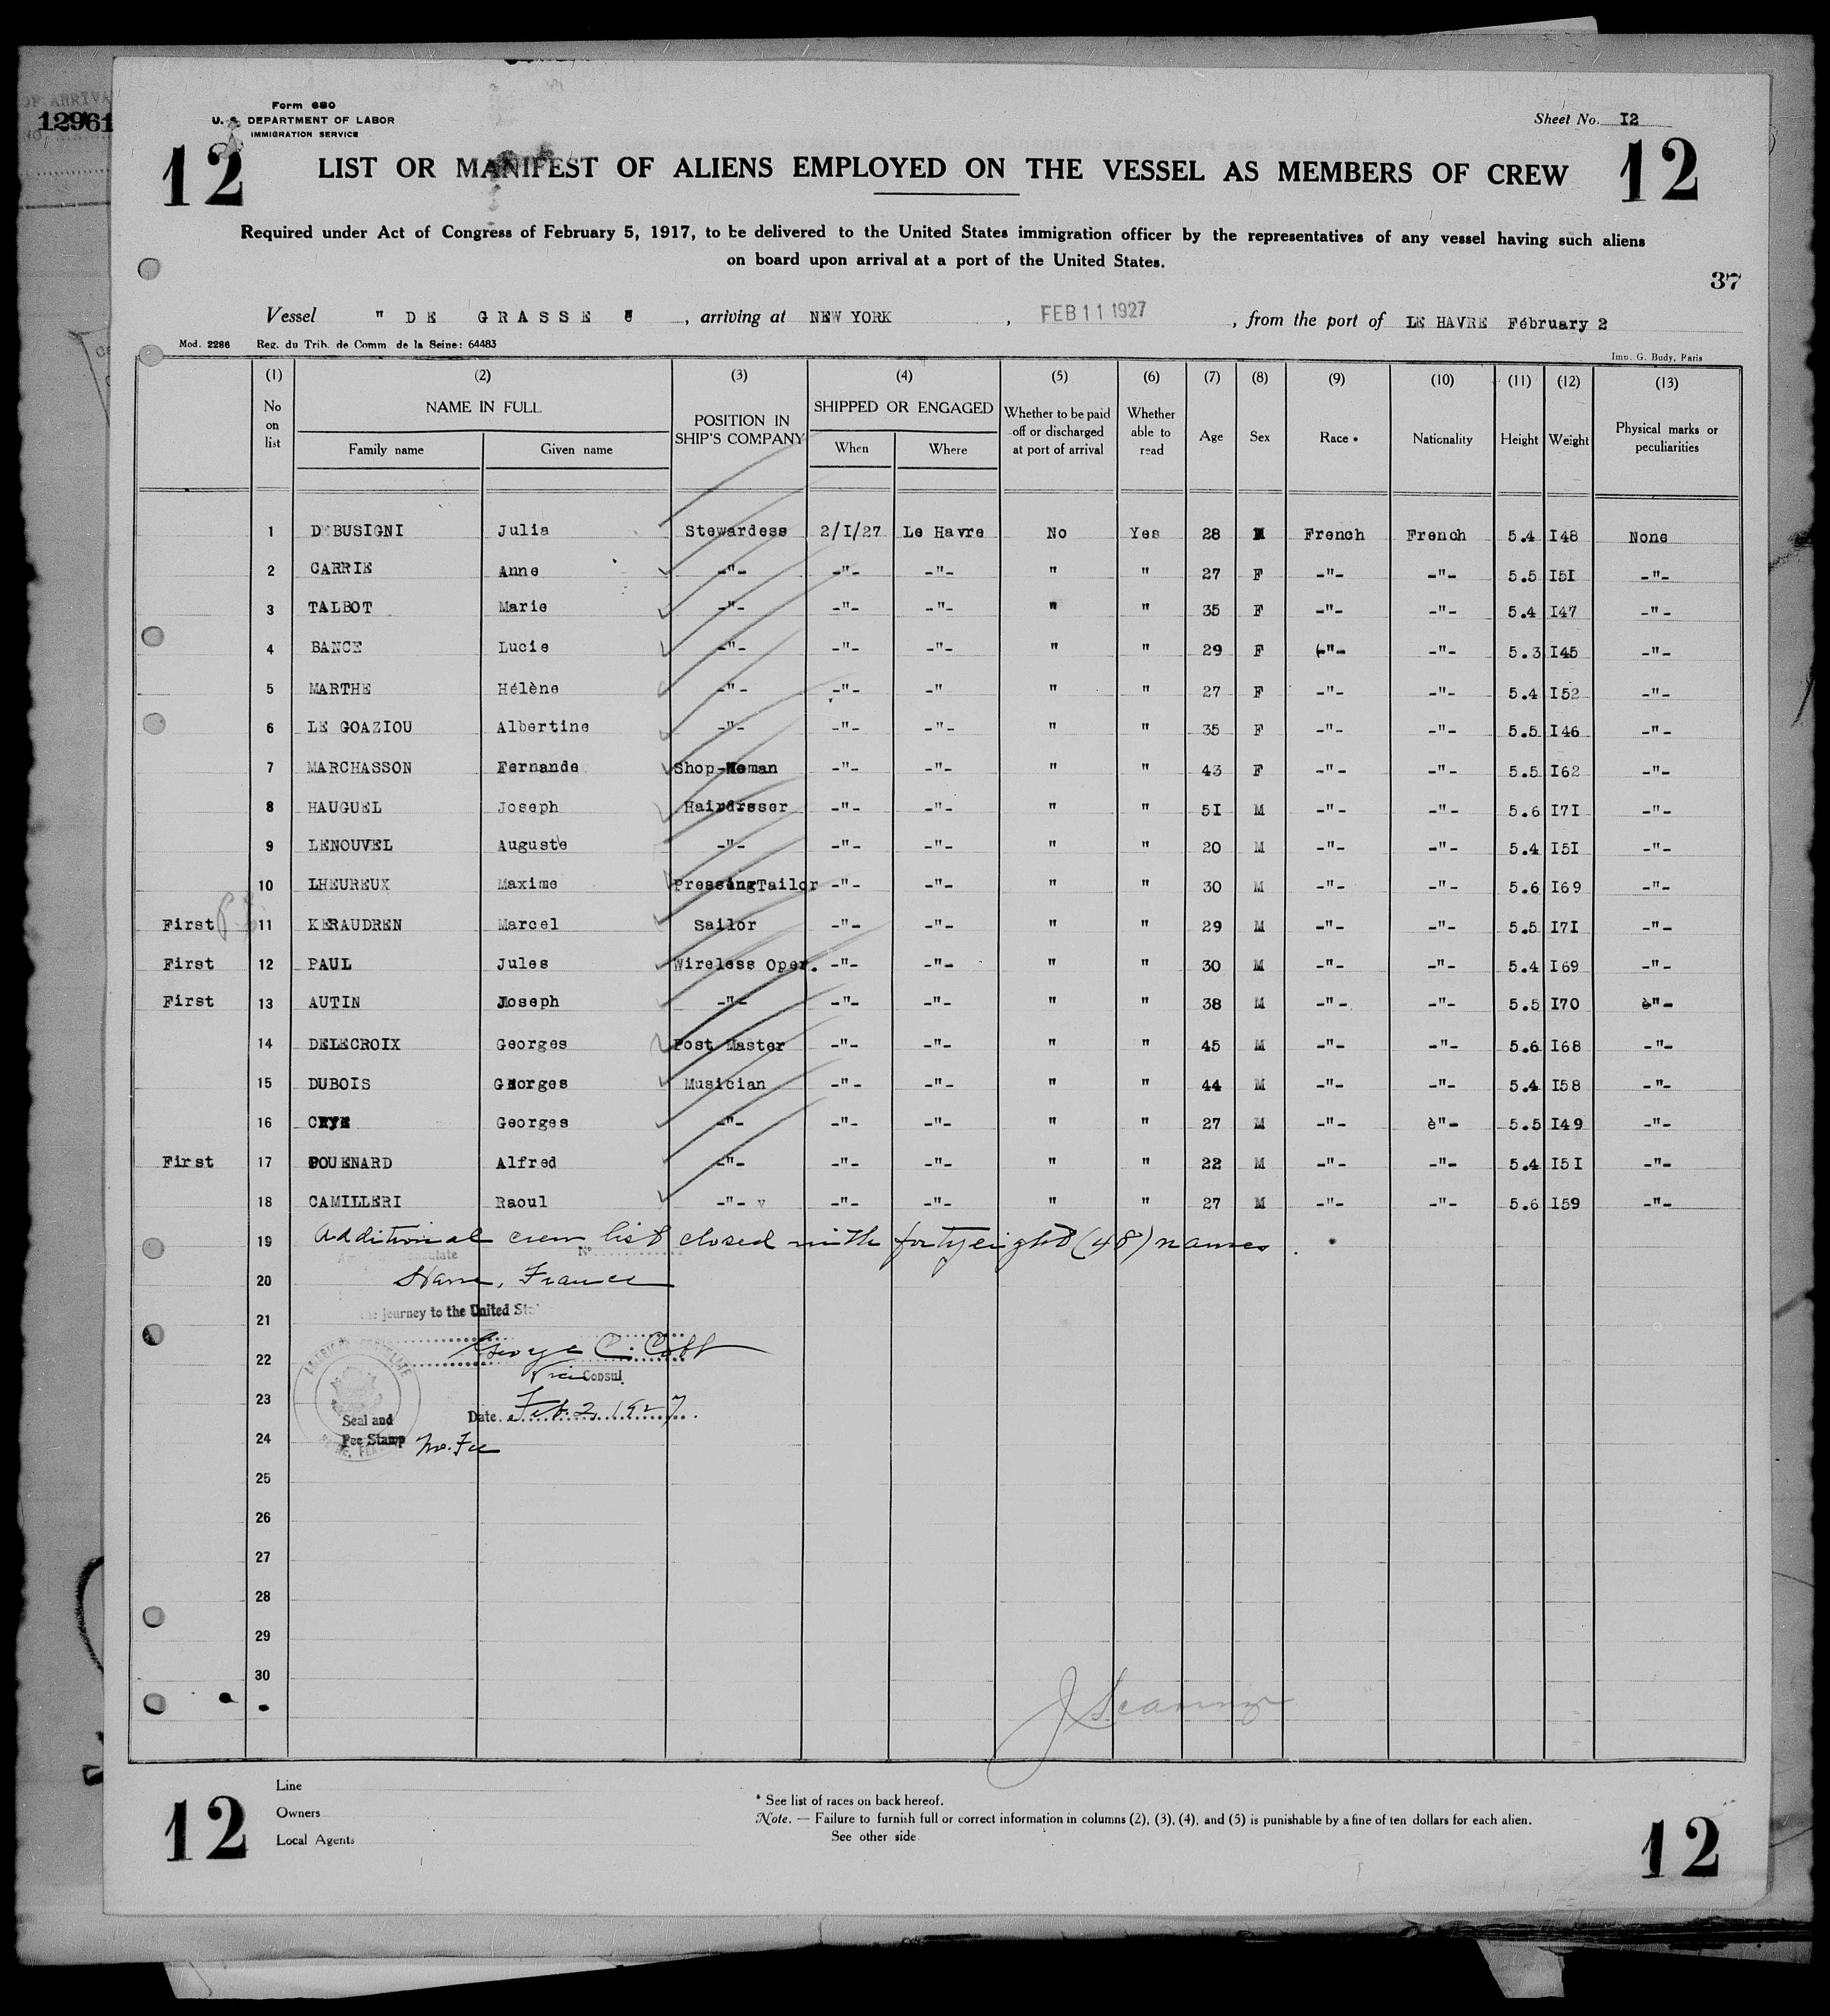 OF ARRIVA
12961
Form 680
U. S. DEPARTMENT OF LABOR
IMMIGRATION SERVICE
Sheet No. I2
12
LIST OR MANIFEST OF ALIENS EMPLOYED ON THE VESSEL AS MEMBERS OF CREW
12
Required under Act of Congress of February 5, 1917, to be delivered to the United States immigration officer by the representatives of any vessel having such aliens
on board upon arrival at a port of the United States.
37
Vessel " DE GRASSE " , arriving at NEW YORK , FEB 11 1927 , from the port of LE HAVRE Fébruary 2
Mod. 2286 Reg. du Trib. de Comm. de la Seine: 64483
Imp. G. Budy, Paris
(1) (2) (3) (4) (5) (6) (7) (8) (9) (10) (11) (12) (13)
No on list NAME IN FULL POSITION IN SHIP'S COMPANY SHIPPED OR ENGAGED Whether to be paid off or discharged at port of arrival Whether able to read Age Sex Race * Nationality Height Weight Physical marks or peculiarities
Family name Given name When Where
1 DEBUSIGNI Julia Stewardess 2/I/27 Le Havre No Yes 28 French French 5.4 I48 None
2 CARRIE Anne -"- -"- -"- " " 27 F -"- -"- 5.5 I5I -"-
3 TALBOT Marie -"- -"- -"- " " 35 F -"- -"- 5.4 I47 -"-
4 BANCE Lucie -"- -"- -"- " " 29 F (-"- -"- 5.3 I45 -"-
5 MARTHE Hélène -"- -"- -" " " 27 F -"- -"- 5.4 I52 -"-
6 LE GOAZIOU Albertine -"- -"- -"- " " 35 F -"- -"- 5.5 I46 -"-
7 MARCHASSON Fernande Shop-Woman -"- -"- " " 43 F -"- -"- 5.5 I62 -"-
8 HAUGUEL Joseph Hairdresser -"- -"- " " 5I M -"- -"- 5.6 I7I -"-
9 LENOUVEL Auguste -"- -"- -"- " " 20 M -"- -"- 5.4 I5I -"-
10 LHEUREUX Maxime PressingTailor -"- -"- " " 30 M -"- -"- 5.6 I69 -"-
First 11 KERAUDREN Marcel Sailor -"- -"- " " 29 M -"- -"- 5.5 I7I -"-
First 12 PAUL Jules Wireless Oper. -"- -"- " " 30 M -"- -"- 5.4 I69 -"-
First 13 AUTIN Joseph -"- -"- -"- " " 38 M -"- -"- 5.5 I70 è"-
14 DELECROIX Georges Post Master -"- -"- " " 45 M -"- -"- 5.6 I68 -"-
15 DUBOIS Georges Musician -"- -"- " " 44 M -"- -"- 5.4 I58 -"-
16 Georges -"- -"- -"- " " 27 M -"- è"- 5.5 I49 -"-
First 17 POUENARD Alfred -"- -"- -"- " " 22 M -"- -"- 5.4 I5I -"-
18 CAMILLERI Raoul -"- v -"- -"- " " 27 M -"- -"- 5.6 I59 -"-
19 Additional crew list closed with fortyeight (48) names.
N°
20 Havre, France
journey to the United Sta
21
George C. Cobb
22
Vice Consul
AMERICAN CONSULATE
23
Date Feb. 2, 1927.
Seal and
Fee Stamp No. Fee
24
25
26
27
28
29
30
Line
Owners
Local Agents
* See list of races on back hereof.
Note. — Failure to furnish full or correct information in columns (2), (3), (4), and (5) is punishable by a fine of ten dollars for each alien.
See other side
12
12